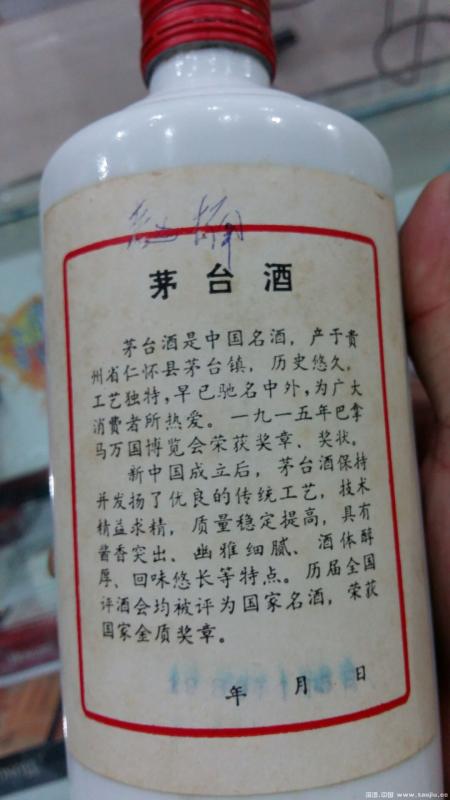 茅台酒
茅台酒是中国名酒，产于贵
州省仁怀县茅台镇，历史悠久，
工艺独特，早已驰名中外，为广大
消费者所热爱。一九一五年巴拿
马万国博览会荣获奖章、奖状。
新中国成立后，茅台酒保持
并发扬了优良的传统工艺，技术
精益求精，质量稳定提高，具有
酱香突出、幽雅细腻、酒体醇
厚、回味悠长等特点。历届全国
评酒会均被评为国家名酒，荣获
国家金质奖章。
年 月 日